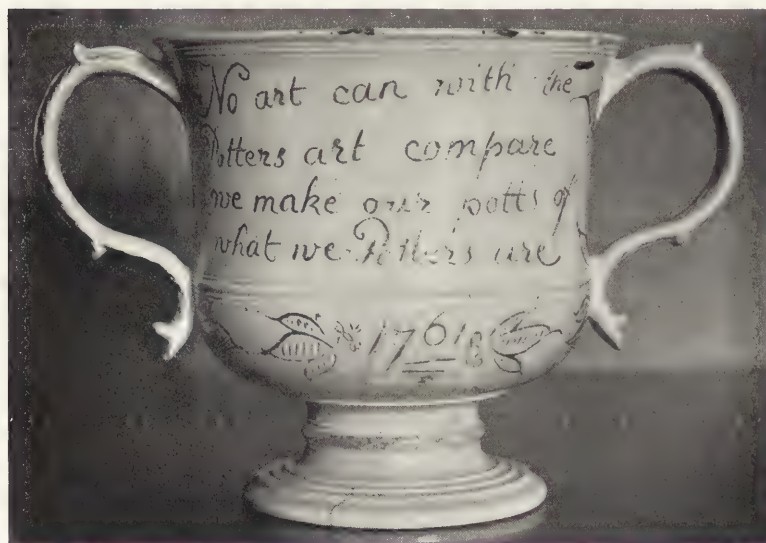 No art can with the
Potters art compare
we make our potts of
what we Potters are
1761